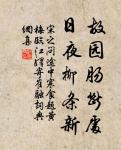 故园肠断处
日夜柳条新
宋之问途中寒食题黄
梅临江驿寄崔融词典
网集